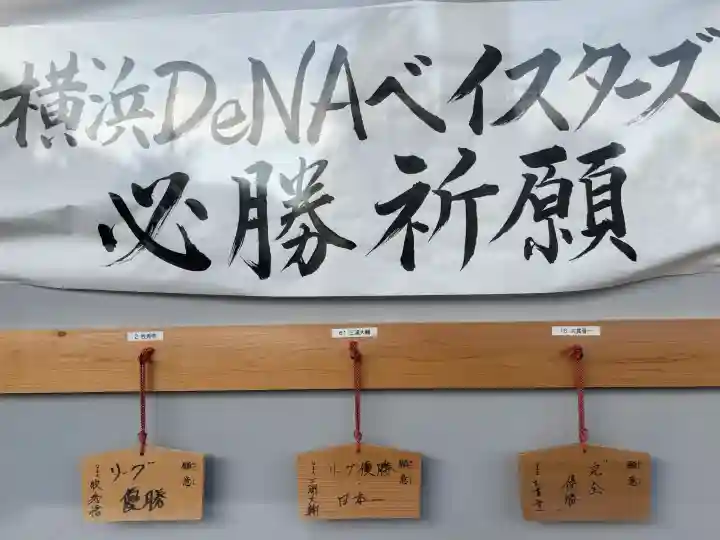 横浜DeNAベイスターズ
必勝祈願
2 牧秀悟
81 三浦大輔
願意
リーグ
優勝
牧秀悟
願意
リーグ優勝
日本一
三浦大輔
願意
完全
優勝